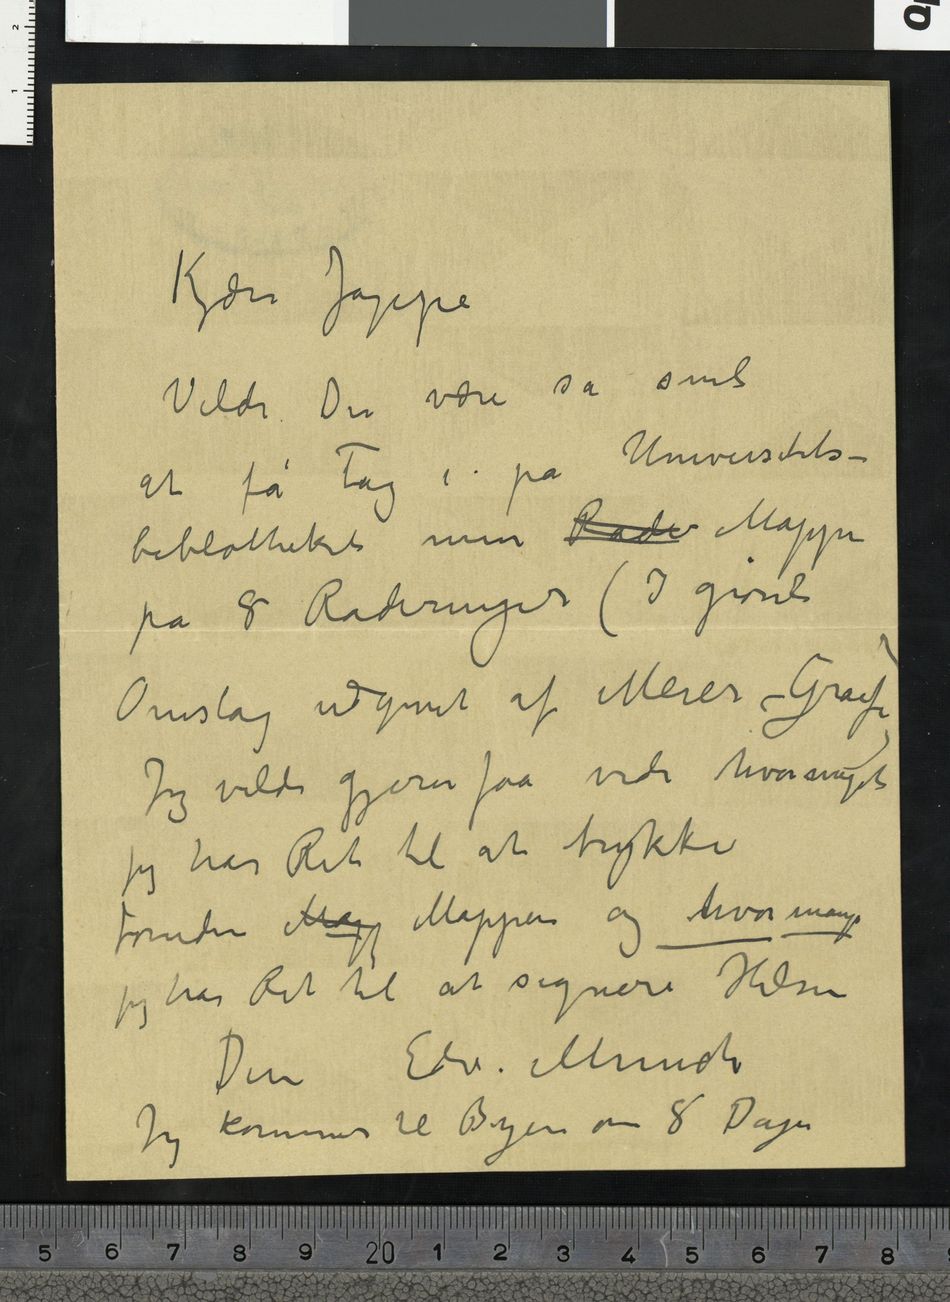 Kjære Jappe
Vilde Du være så snil
at få Tag i på Universitets-
bibliotheket min Rade Mappe
på 8 Raderinger (I grønt
Omslag udgivet af Meier-Graefe)
Jeg vilde gjerne faa vide hvormeget
jeg har Ret til at trykke
foruden Mapp Mappen og hvor mange
jeg har Ret til at signere Hilsen
Din Edv. Munch
Jeg kommer til Byen om 8 Dage